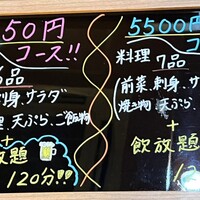 50円
コース!!
品
刺身、サラダ
天ぷら、ご飯物
+
放題
120分!!
5500
コ
料理 7品
(前菜、刺身、サ
焼き物、天ぷら、
+
飲放題
12